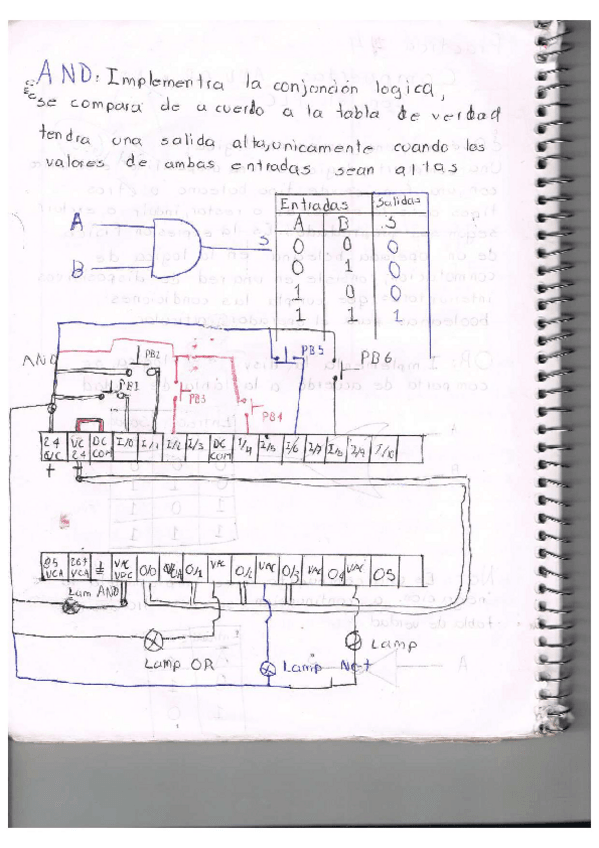 AND: Implementra la conjunción logica,
se compara de acuerdo a la tabla de verdad
tendra una salida alta, unicamente cuando los
valores de ambas entradas sean altas
A
B
S
Entradas Salidas
A B S
0 0 0
0 1 0
1 0 0
1 1 1
AND
PB2
PB1
PB3
PB4
PB5
PB6
24 VDC DC COM I/0 I/1 I/2 I/3 DC COM I/4 I/5 I/6 I/7 I/8 I/9 I/10
+ +
85 VCA 267 VCA VAC VDC O/0 O/1 VAC O/2 VAC O/3 VAC O4 VAC O5
Lam AND
Lamp OR
Lamp Not
Lamp